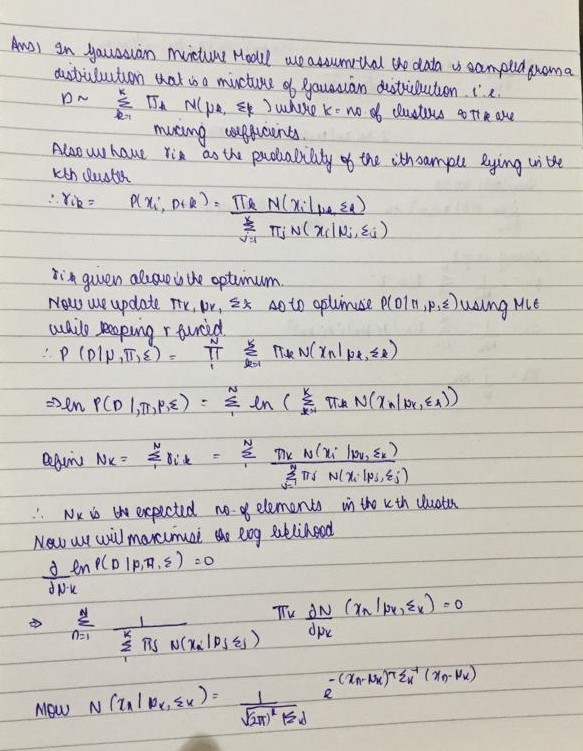 Ans) In Gaussian Mixture Model we assume that the data is sampled from a
distribution that is a mixture of Gaussian distribution i.e.
D ~ K Σ k=1 πk N(μk, Σk) where K = no. of clusters & πk are
mixing coefficients.
Also we have rik as the probability of the ith sample lying in the
kth cluster
∴ rik = P(xi, D+k) = πk N(xi|μk, Σk)
K Σ j=1 πj N(xi|μj, Σj)
rik given above is the optimum.
Now we update πk, μk, Σk so to optimise P(D|π, μ, Σ) using MLE
while keeping r fixed.
∴ P (D|μ, π, Σ) = N Π 1 K Σ k=1 πk N(xn|μk, Σk)
⇒ ln P(D |, π, μ, Σ) = N Σ 1 ln ( K Σ k=1 πk N(xn|μk, Σk))
Define Nk = N Σ 1 rik = N Σ 1 πk N(xi |μk, Σk)
N Σ j=1 πj N(xi|μj, Σj)
∴ Nk is the expected no. of elements in the kth cluster
Now we will maximise the log liklihood
∂ ln P(D|μ, π, Σ) = 0
∂μk
⇒ N Σ n=1 1 πk ∂N (xn|μk, Σk) = 0
K Σ 1 πj N(xn|μj Σj) ∂μk
Now N (xn|μk, Σk) = 1 e -(xn-μk)ᵀ Σk⁻¹ (xn-μk)
√(2π)ᵏ |Σk|